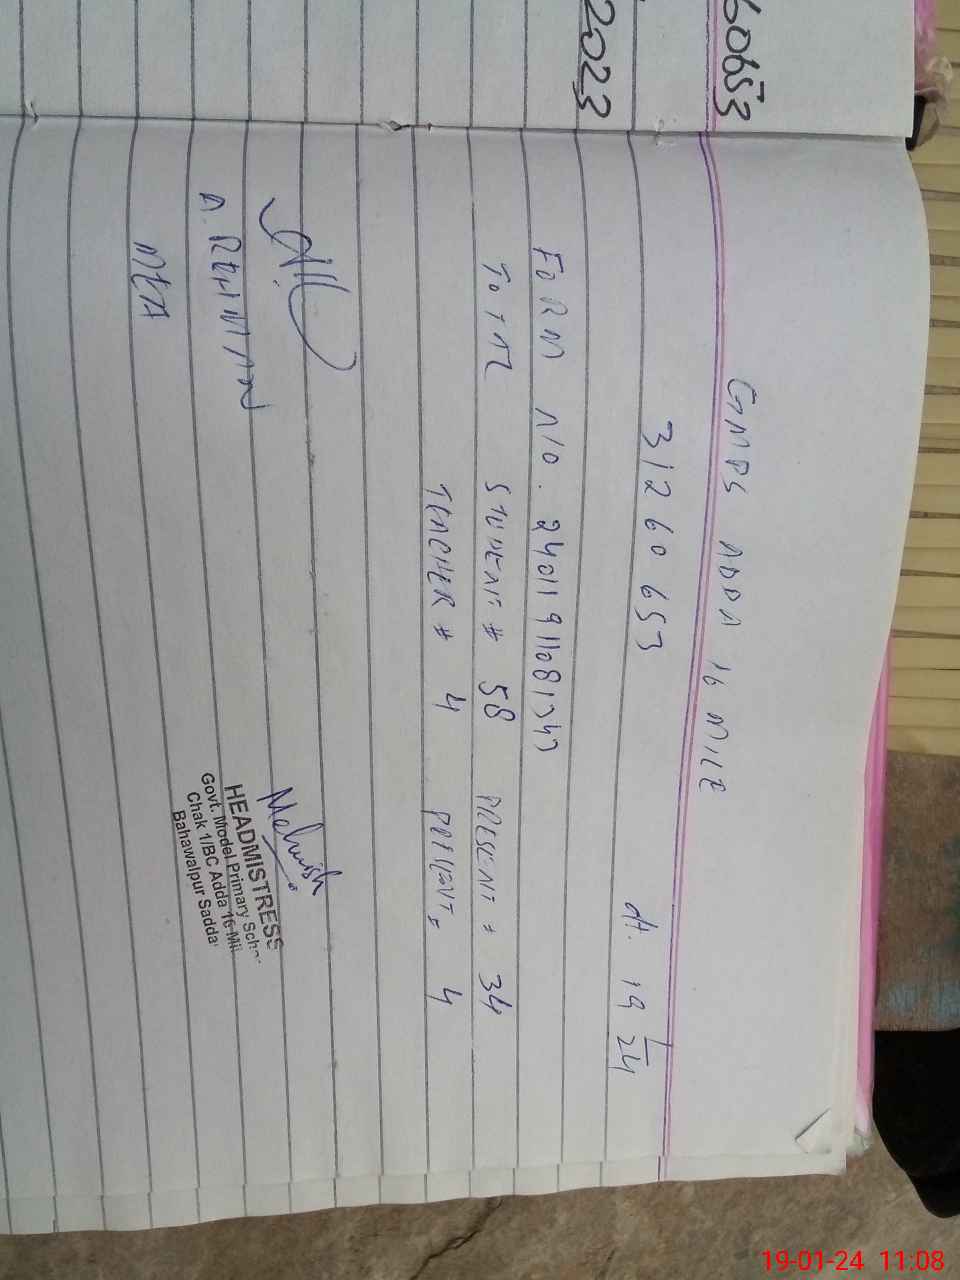 60653
2023
GMPS ADDA 16 MILE
31260653
dt. 19 1/24
FORM NO. 24011911081347
TOTAL STUDENT # 58 PRESENT = 34
TEACHER # 4 PRESENT = 4
A. REHMAN
MEA
Mehwish
HEADMISTRESS
Govt. Model Primary Scho
Chak 1/BC Adda 16-Mil
Bahawalpur Sadda
19-01-24 11:08